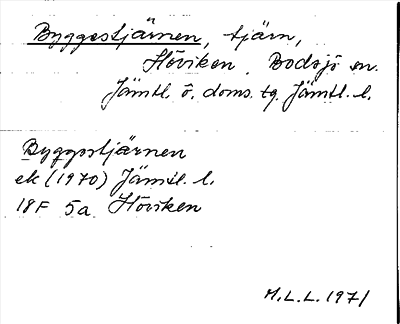 Byggestjärnen, tjärn,
Höviken. Bodsjö sn.
Jämtl. ö. doms. tg. Jämtl. l.
Byggestjärnen
ek (1970) Jämtl. l.
18F 5a Höviken
M.L.L. 1971